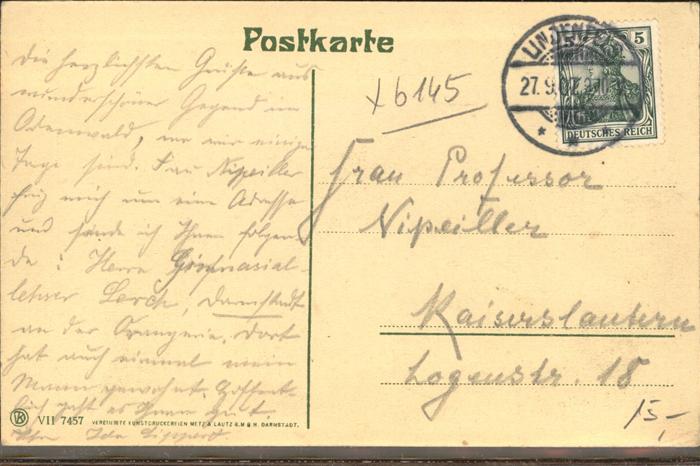 Postkarte
Die herzlichsten Grüße aus
wunderschöner Gegend im
Odenwald, wo wir einige
Tage sind. Frau Nipeiller
frug mich um eine Adresse
und sende ich Ihnen folgen-
de: Herrn Gymnasial-
lehrer Lerch, Darmstadt
an der Orangerie. Dort
hat auch einmal mein
Mann gewohnt. Hoffent-
lich geht es Ihnen gut.
Ihre Ida Lippert
+6145
LINDENFELS
27.9.07
5
DEUTSCHES REICH
Frau Professor
Nipeiller
Kaiserslautern
Logenstr. 18
15,-
VII 7457 VEREINIGTE KUNSTDRUCKEREIEN METZ & LAUTZ G.M.B.H. DARMSTADT.